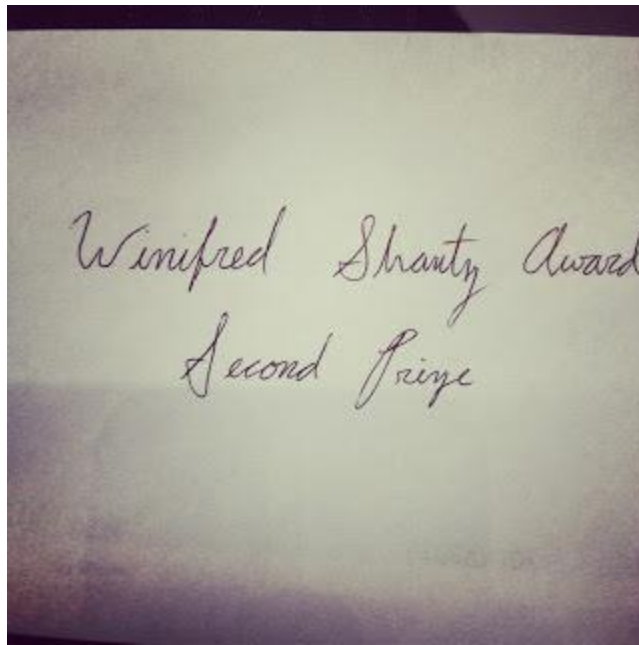 Winifred Shantz Award
Second Prize